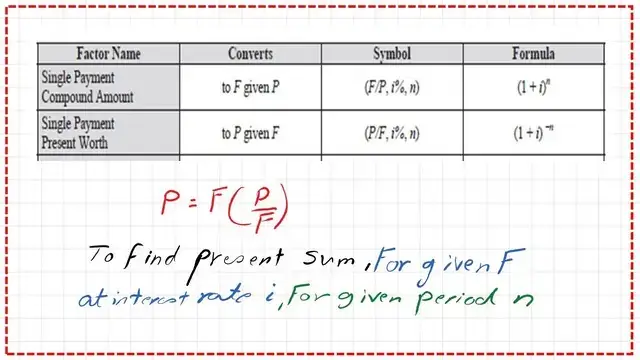 Factor Name Converts Symbol Formula
Single Payment
Compound Amount to F given P (F/P, i%, n) (1 + i)ⁿ
Single Payment
Present Worth to P given F (P/F, i%, n) (1 + i)⁻ⁿ
P = F(P/F)
To find present sum, For given F
at interest rate i, For given period n